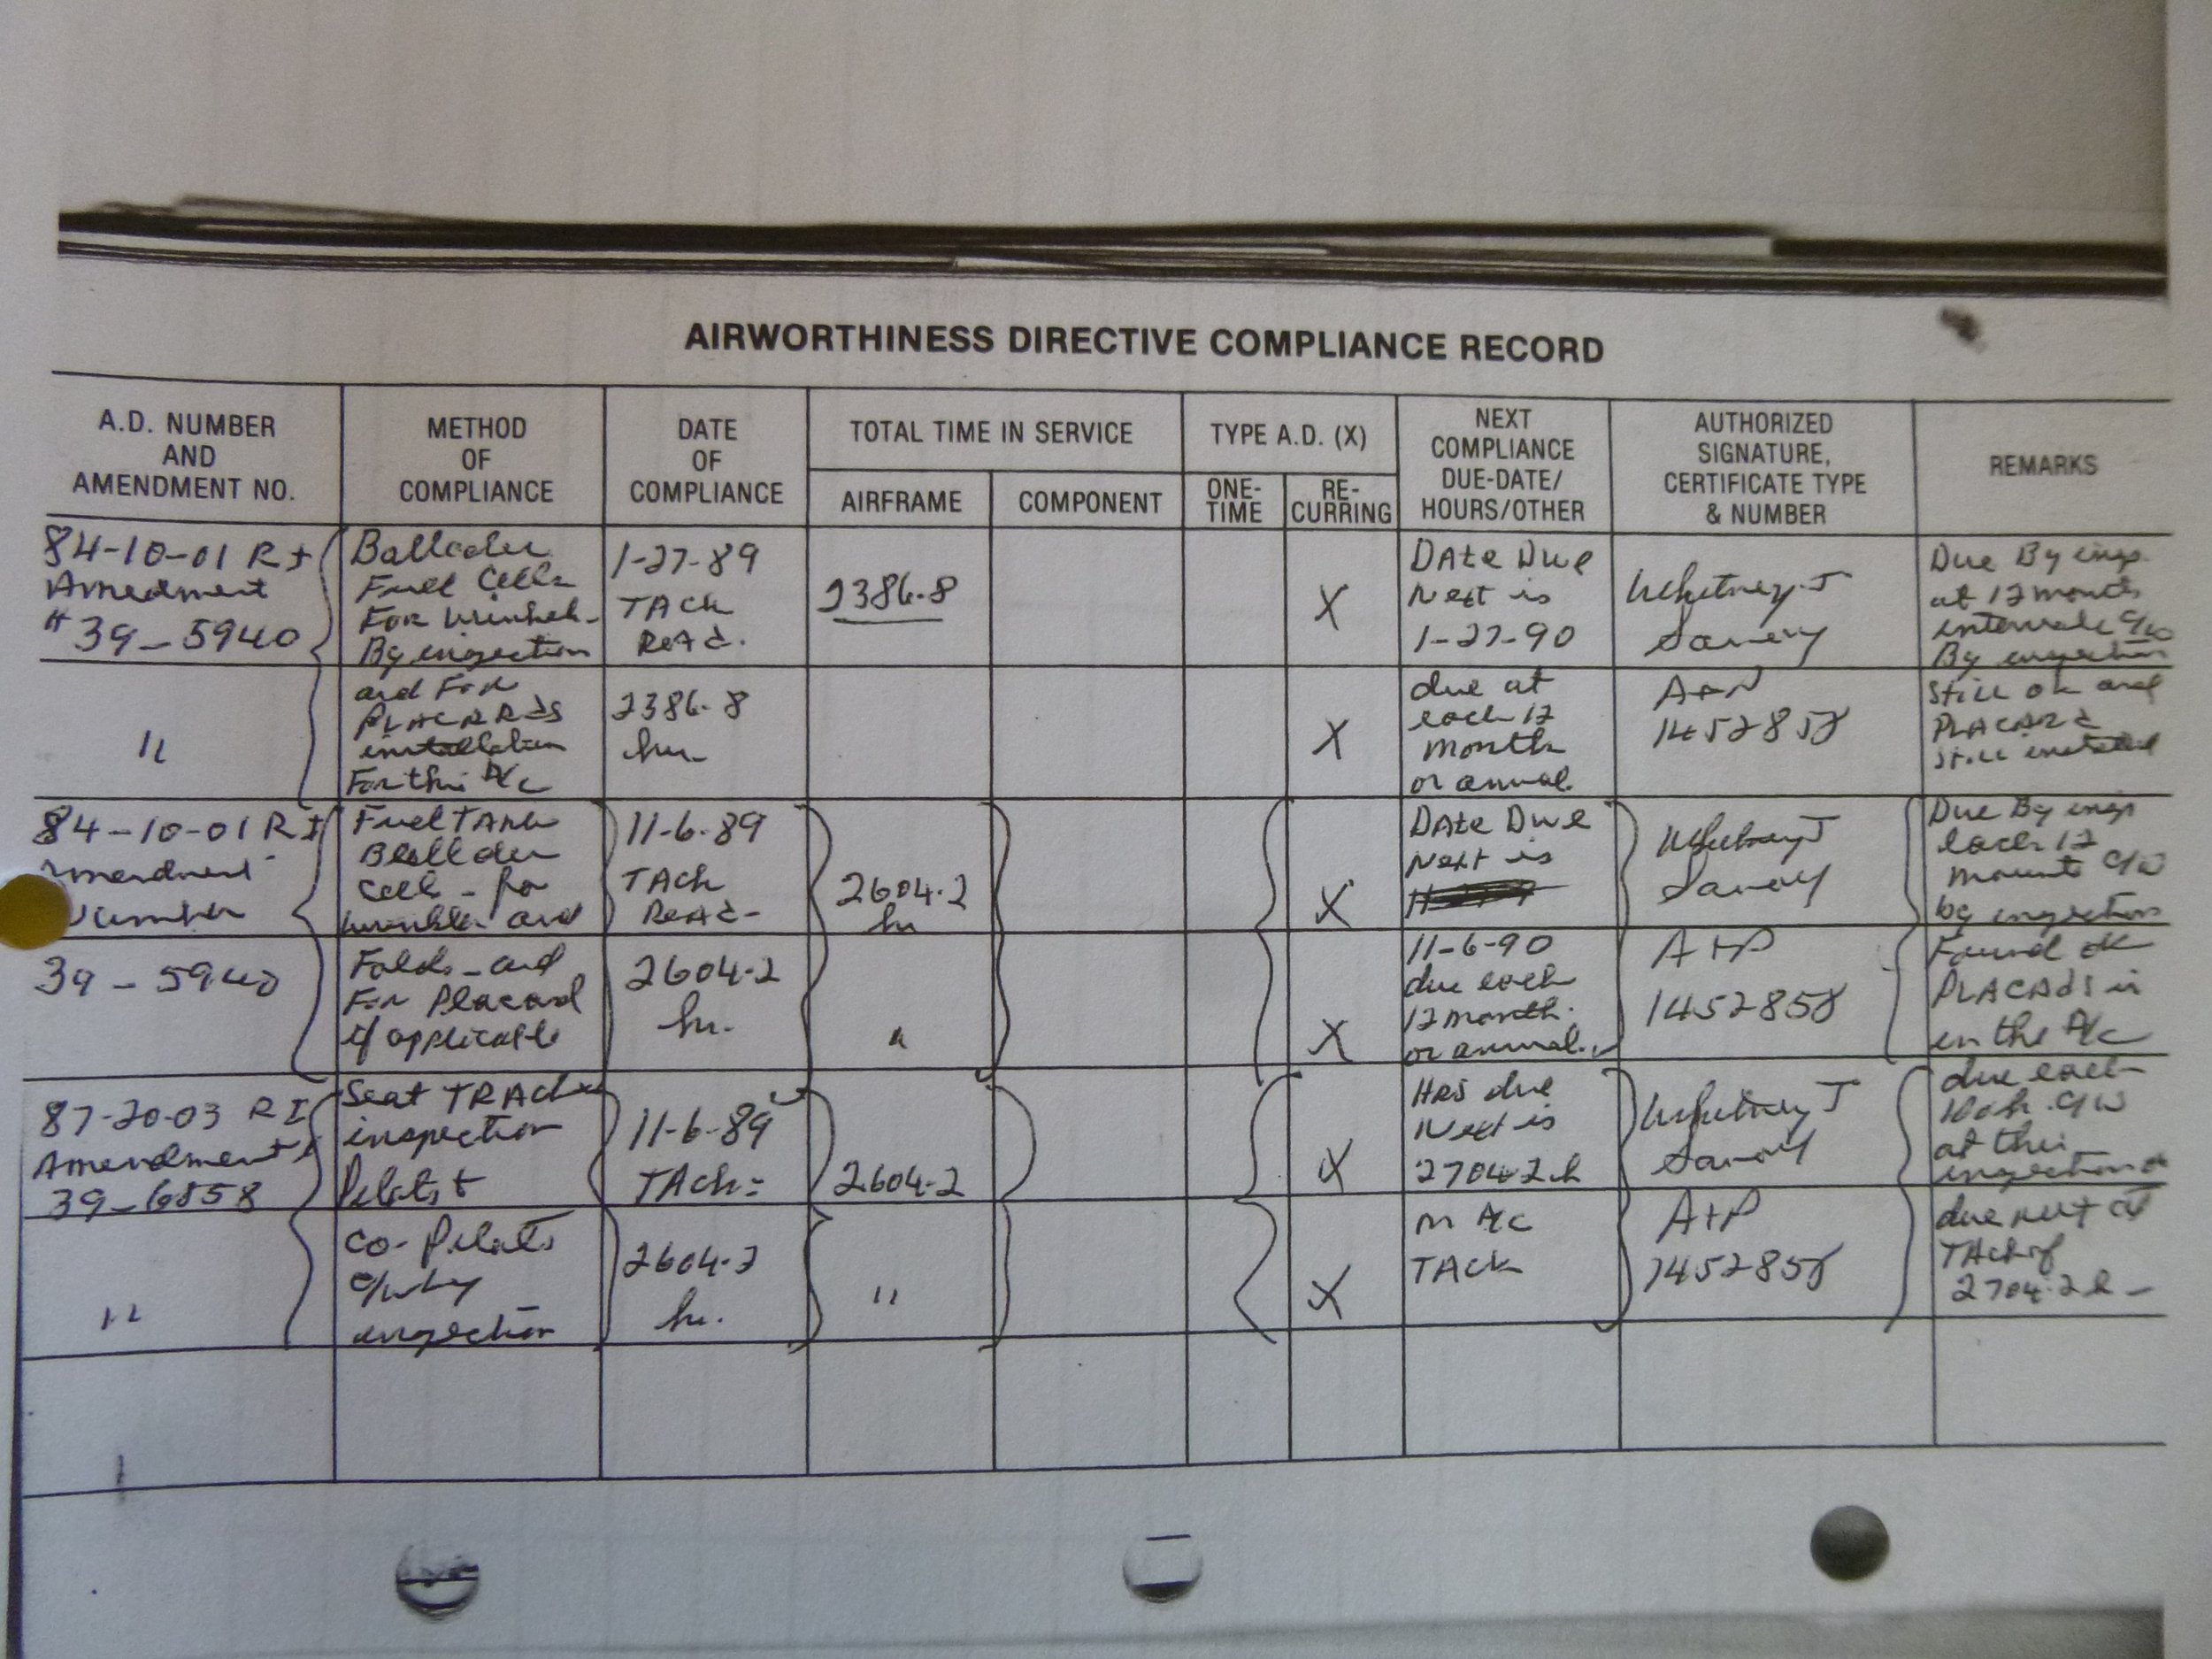 AIRWORTHINESS DIRECTIVE COMPLIANCE RECORD
A.D. NUMBER
AND
AMENDMENT NO.
METHOD
OF
COMPLIANCE
DATE
OF
COMPLIANCE
TOTAL TIME IN SERVICE
AIRFRAME
COMPONENT
TYPE A.D. (X)
ONE-
TIME
RE-
CURRING
NEXT
COMPLIANCE
DUE-DATE/
HOURS/OTHER
AUTHORIZED
SIGNATURE,
CERTIFICATE TYPE
& NUMBER
REMARKS
84-10-01 R I
Amedment
# 39-5940
Fuel Cells
For
By inspection
1-27-89
TAch
ReAd.
2386.8
X
DAte Due
Next is
1-27-90
Whitney J
Savoy
Due By insp.
at 12 month
intervals c/w
By inspection
"
and For
PLACARds
installation
For this A/c
2386.8
hr
X
due at
each 12
month
or annual
A+P
1452858
still ok and
PLACARd
still installed
84-10-01 R I
Amendment
Number
Fuel TANk
cell - for
and
11-6-89
TAch
ReAd-
2604.2
hr
X
DAte Due
Next is
Whitney J
Savoy
Due By insp
each 12
c/w
by inspection
39-5940
Folds - and
For Placard
if applicable
2604.2
hr.
"
X
11-6-90
due each
12 month.
or annual.
A+P
1452858
Found ok
PLACAds in
in the A/c
87-20-03 R I
Amendment #
39-6858
Seat TRAck
inspection
Pilots +
11-6-89
TAch =
2604.2
X
HRS due
Next is
2704.2 h
Whitney J
Savoy
due each
100 h. c/w
at this
inspection ok
"
Co-Pilots
c/w by
inspection
2604.2
hr.
"
X
on A/c
TAch
A+P
1452858
due next at
TAch of
2704.2 h -